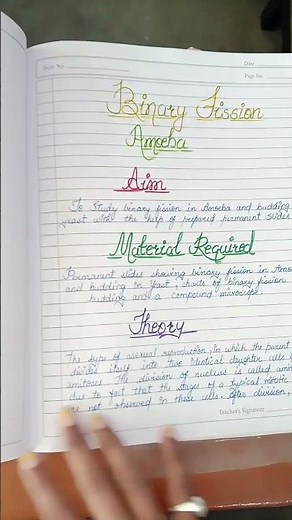 Date
Page No.
Binary Fission
Amoeba
Aim
To Study binary fission in Amoeba and budding
yeast with the help of prepared permanent slides
Material Required
Permanent slides showing binary fission in Amo
and budding in yeast, charts of binary fission
budding and a compound microscope.
Theory
The type of asexual reproduction, in which the parent
divides itself into two identical daughter cells
amitosis. The division of nucleus is called ami
due to fact that the stages of a typical mitotic
are not observed in these cells. After division,
Teacher's Signature